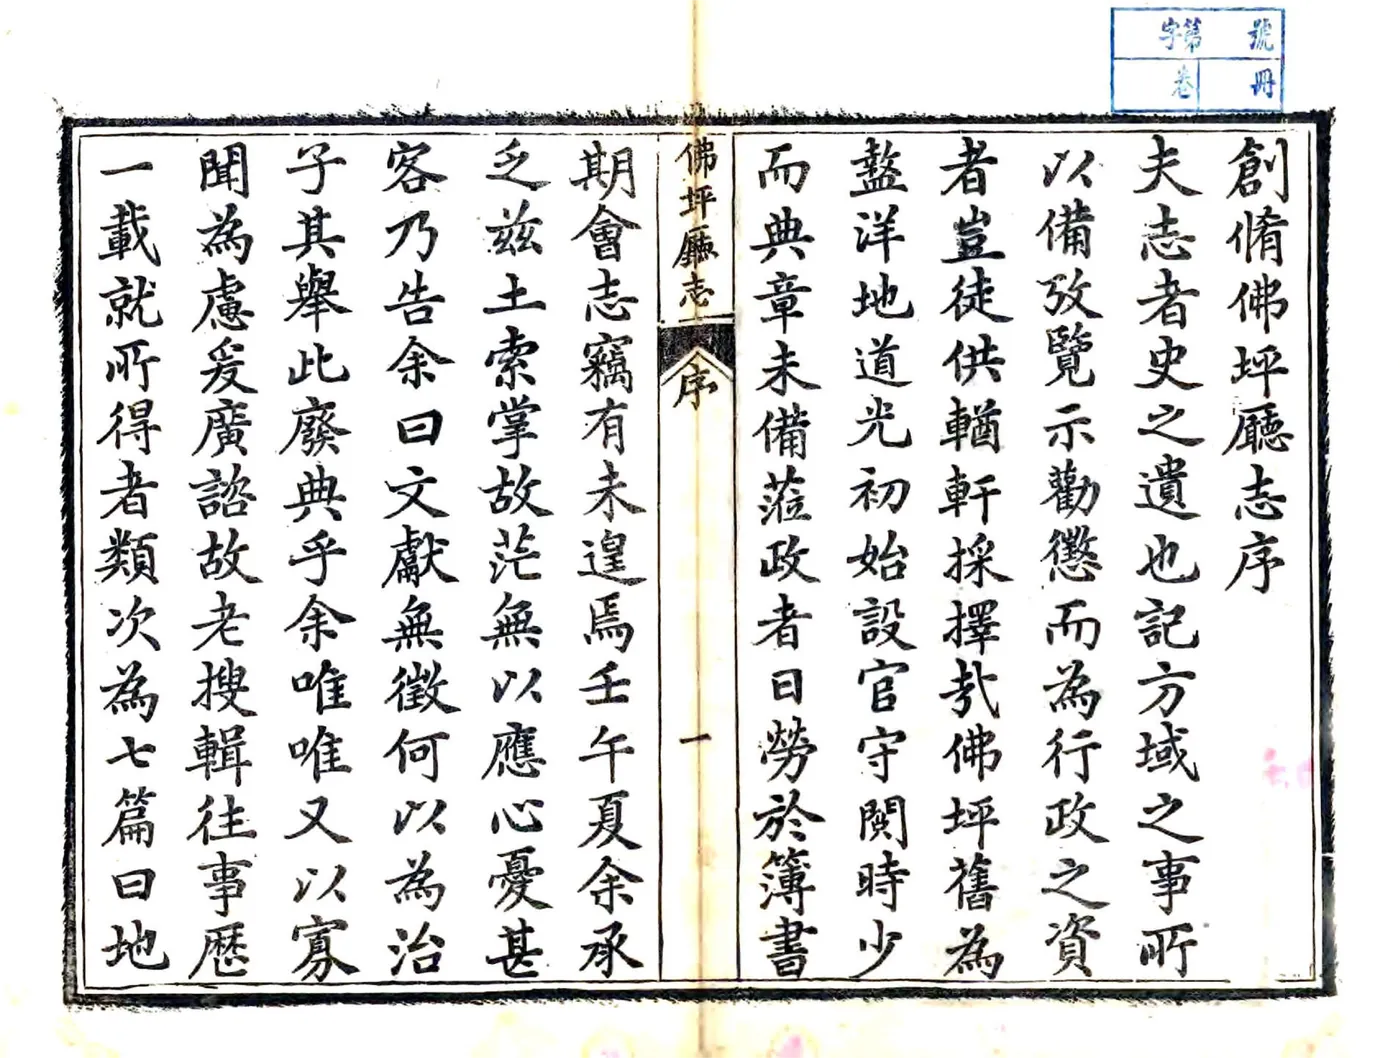 字第 號
卷 冊
創脩佛坪廳志序
夫志者史之遺也記方域之事所
以備攷覽示勸懲而為行政之資
者豈徒供輶軒採擇㢤佛坪舊為
盩洋地道光初始設官守闃時少
而典章未備蒞政者日勞於簿書
佛坪廳志
序
一
期會志竊有未遑焉壬午夏余承
乏兹土索掌故茫無以應心憂甚
客乃告余曰文獻無徵何以為治
子其舉此廢典乎余唯唯又以寡
聞為慮爰廣諮故老搜輯往事歷
一載就所得者類次為七篇曰地